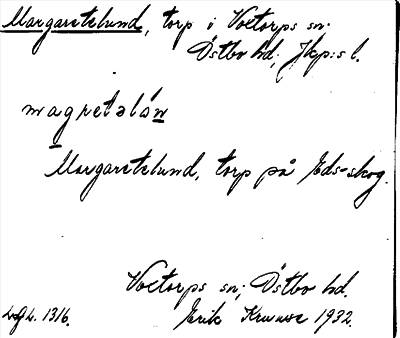 Margaretelund, torp i Voetorps sn;
Östbo hd; Jkp:s l.
magretalón
Margaretelund, torp på Eds-skog.
Voetorps sn; Östbo hd.
1316. Erik 1932.